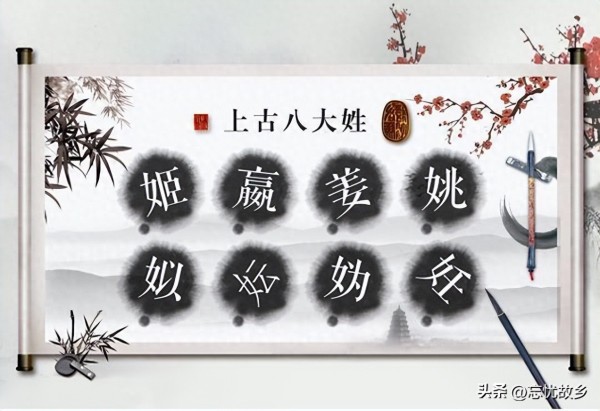 上古八大姓
姬 嬴 姜 姚
姒 妘 妫 妊
头条 @忘忧故乡